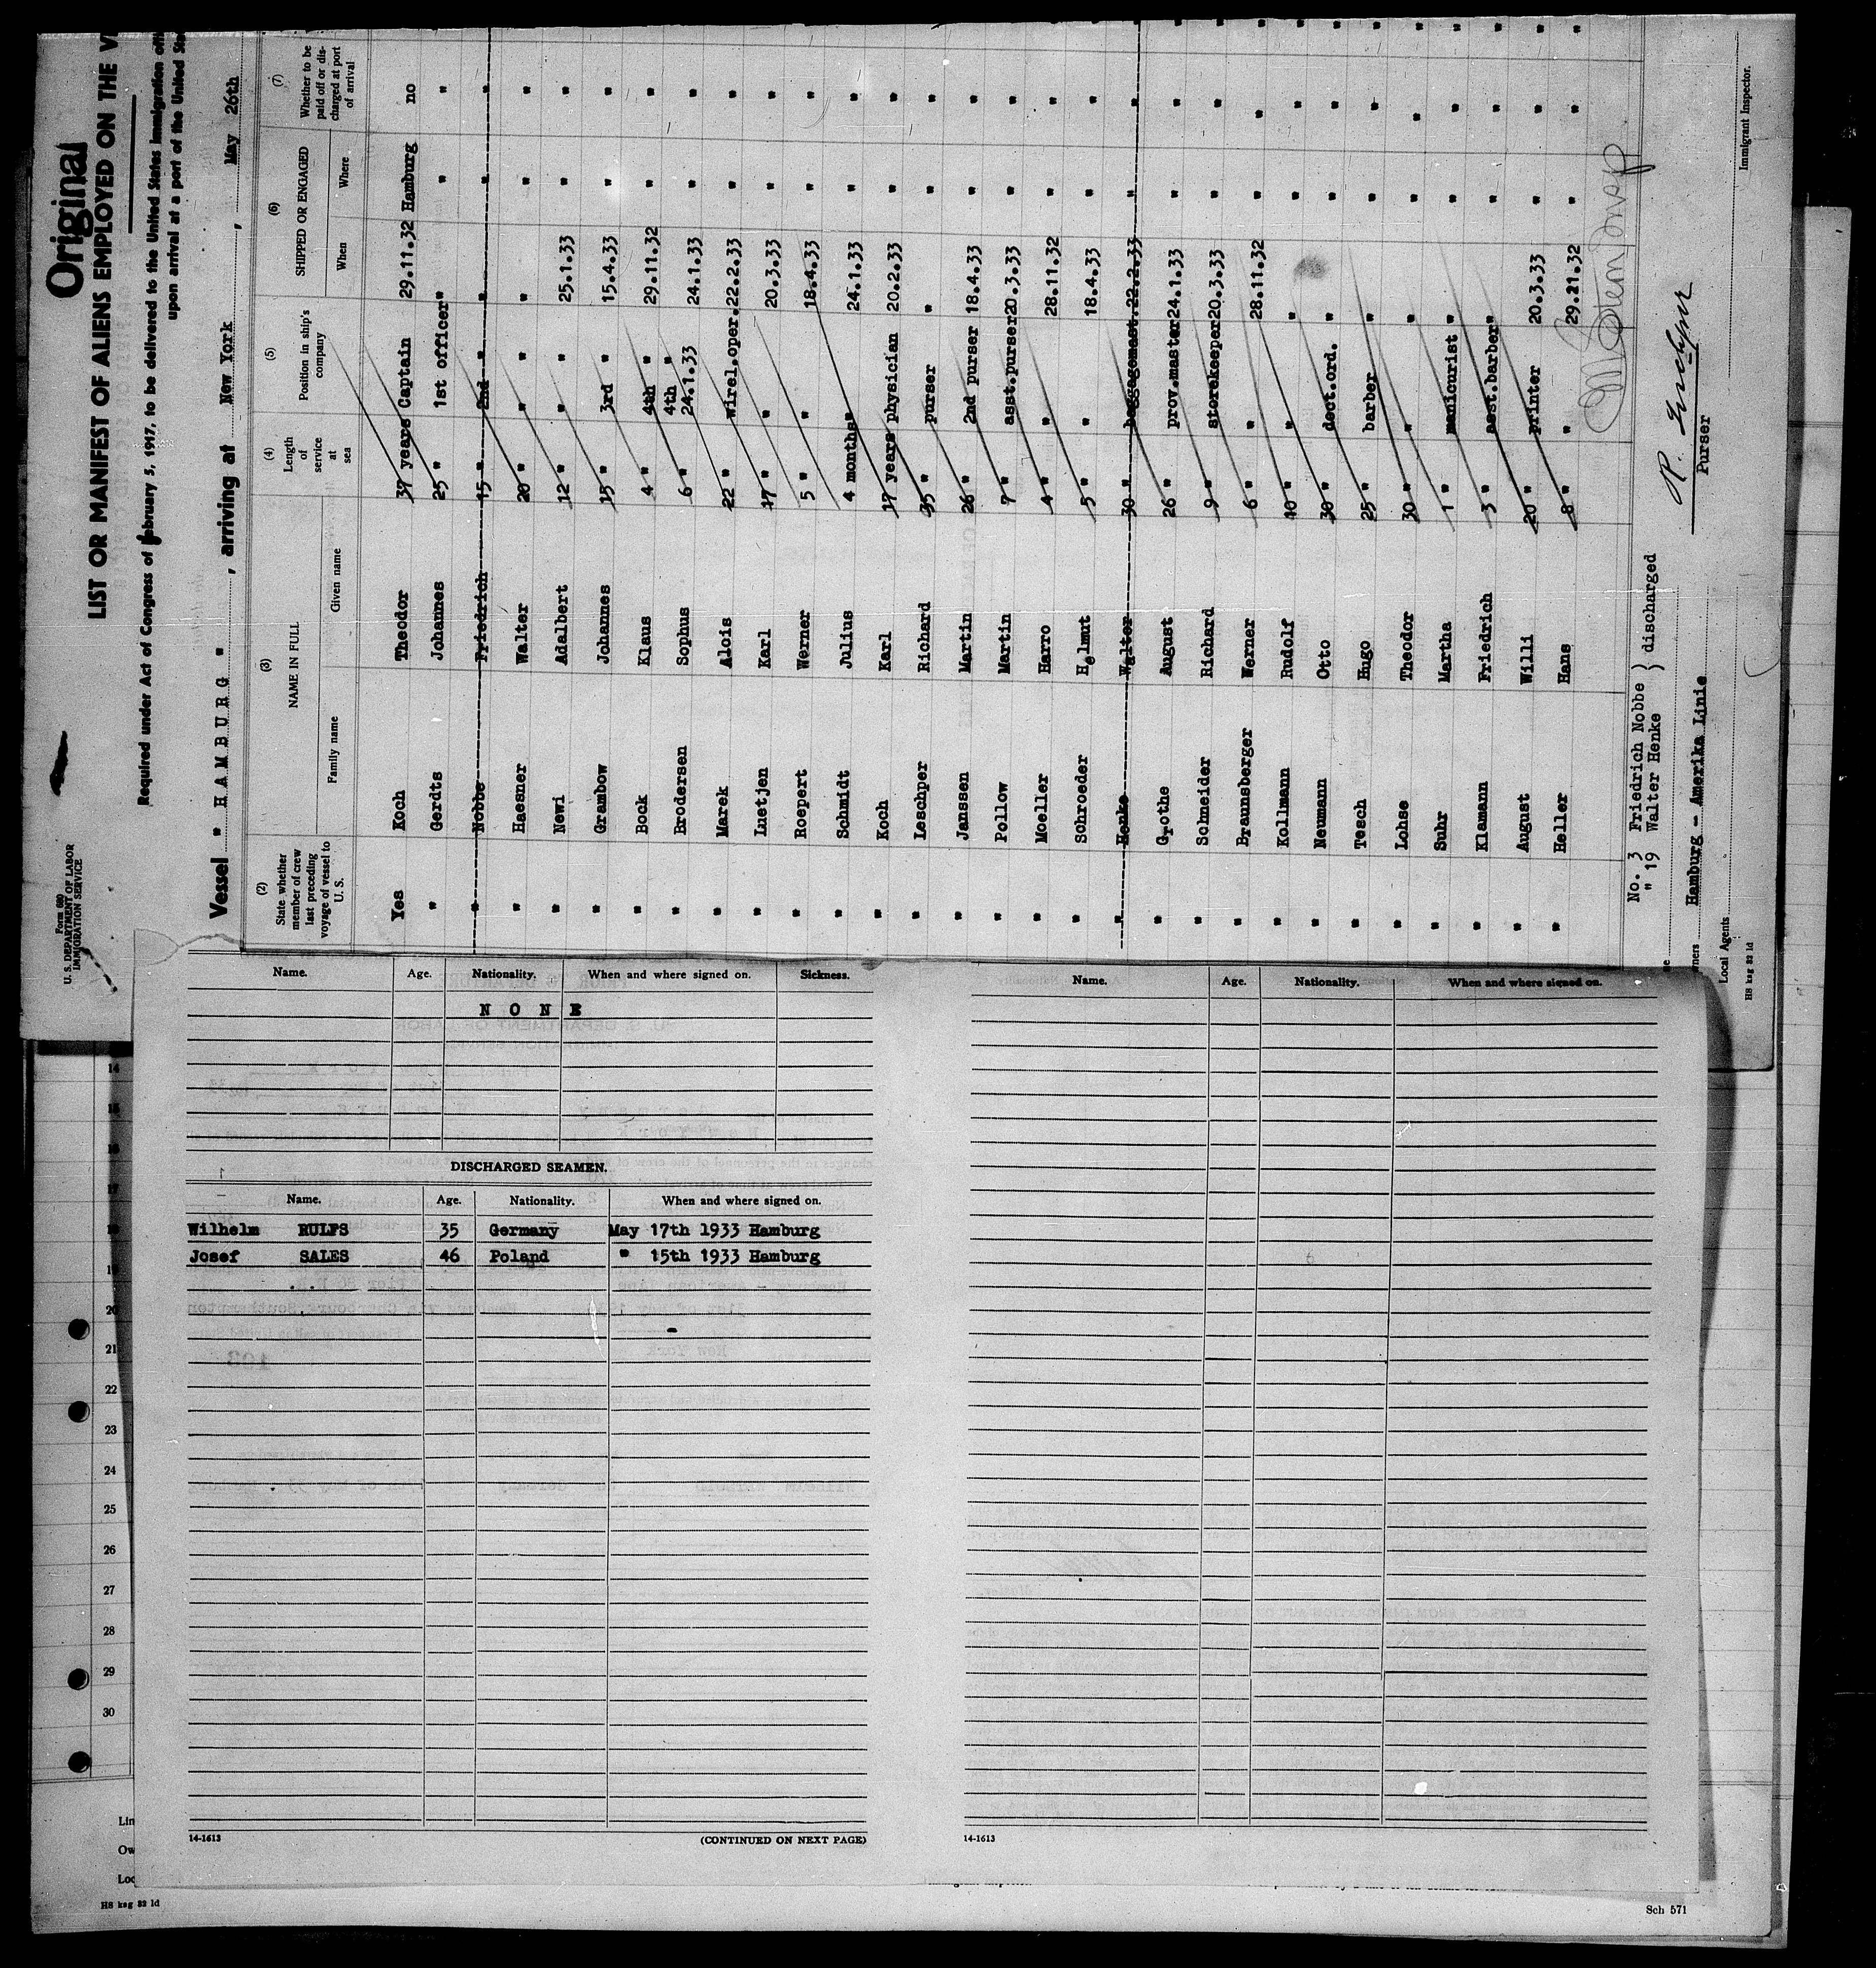 Original
LIST OR MANIFEST OF ALIENS EMPLOYED ON THE V
Form 680
U. S. DEPARTMENT OF LABOR
IMMIGRATION SERVICE
Required under Act of Congress of February 5, 1917, to be delivered to the United States immigration offi
upon arrival at a port of the United Sta
Vessel " HAMBURG " , arriving at New York , May 26th
(2) State whether member of crew last preceding voyage of vessel to U. S.
(3) NAME IN FULL
Family name
Given name
(4) Length of service at sea
(5) Position in ship's company
(6) SHIPPED OR ENGAGED
When
Where
(7) Whether to be paid off or discharged at port of arrival
Yes Koch Theodor 37 years Captain 29.11.32 Hamburg no
" Gerdts Johannes 25 " 1st officer " " "
" Nobbe Friedrich 15 " 2nd " " " "
" Haesner Walter 20 " " " " " "
" Newi Adalbert 12 " " " 25.1.33 " "
" Grambow Johannes 15 " 3rd " 15.4.33 " "
" Bock Klaus 4 " 4th " 29.11.32 " "
" Brodersen Sophus 6 " 4th " 24.1.33 24.1.33 " "
" Marek Alois 22 " wirel.oper. 22.2.33 " "
" Luetjen Karl 17 " " 20.3.33 " "
" Roepert Werner 5 " " 18.4.33 " "
" Schmidt Julius 4 months " 24.1.33 " "
" Koch Karl 17 years physician 20.2.33 " "
" Leschper Richard 35 " purser " " "
" Janssen Martin 26 " 2nd purser 18.4.33 " "
" Pollow Martin 7 " asst.purser 20.3.33 " "
" Moeller Harro 4 " " 28.11.32 " "
" Schroeder Helmut 5 " " 18.4.33 " "
" Henke Walter 30 " baggagemast. 22.2.33 " "
" Grothe August 26 " prov.master 24.1.33 " "
" Schneider Richard 9 " storekeeper 20.3.33 " "
" Braunsberger Werner 6 " " 28.11.32 " "
" Kollmann Rudolf 10 " " " " "
" Neumann Otto 30 " dect.ord. " " "
" Tesch Hugo 25 " barber " " "
" Lohse Theodor 30 " " " " "
" Suhr Martha 1 " manicurist " " "
" Klamann Friedrich 3 " asst.barber " " "
" August Willi 20 " printer 20.3.33 " "
" Heller Hans 8 " " 29.11.32 " "
No. 3 Friedrich Nobbe } discharged
" 19 Walter Henke
Hamburg - Amerika Linie
Purser
Local Agents
Immigrant Inspector.
H8 kag 32 1d
Name. Age. Nationality. When and where signed on. Sickness.
NONE
DISCHARGED SEAMEN.
Name. Age. Nationality. When and where signed on.
Wilhelm RULFS 35 Germany May 17th 1933 Hamburg
Josef SALES 46 Poland " 15th 1933 Hamburg
14-1613 (CONTINUED ON NEXT PAGE)
Name. Age. Nationality. When and where signed on.
14-1613
14
15
16
17
18
19
20
21
22
23
24
25
26
27
28
29
30
Lin
Ow
Loc
H8 kag 32 1d
Sch 571